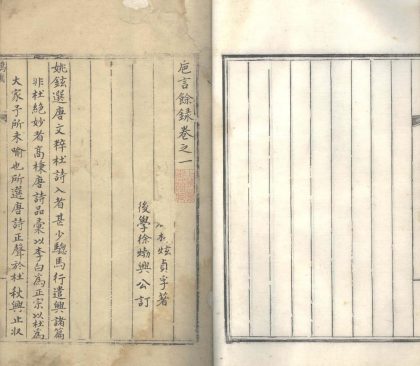 巵言餘錄卷之一
貞孚著
後學徐𤊹興公訂
姚鉉選唐文粹杜詩入者甚少驄馬行遣興諸篇
非杜絕妙者高棅唐詩品彙以李白為正宗以杜為
大家予所未喻也所選唐詩正聲於杜秋興止収